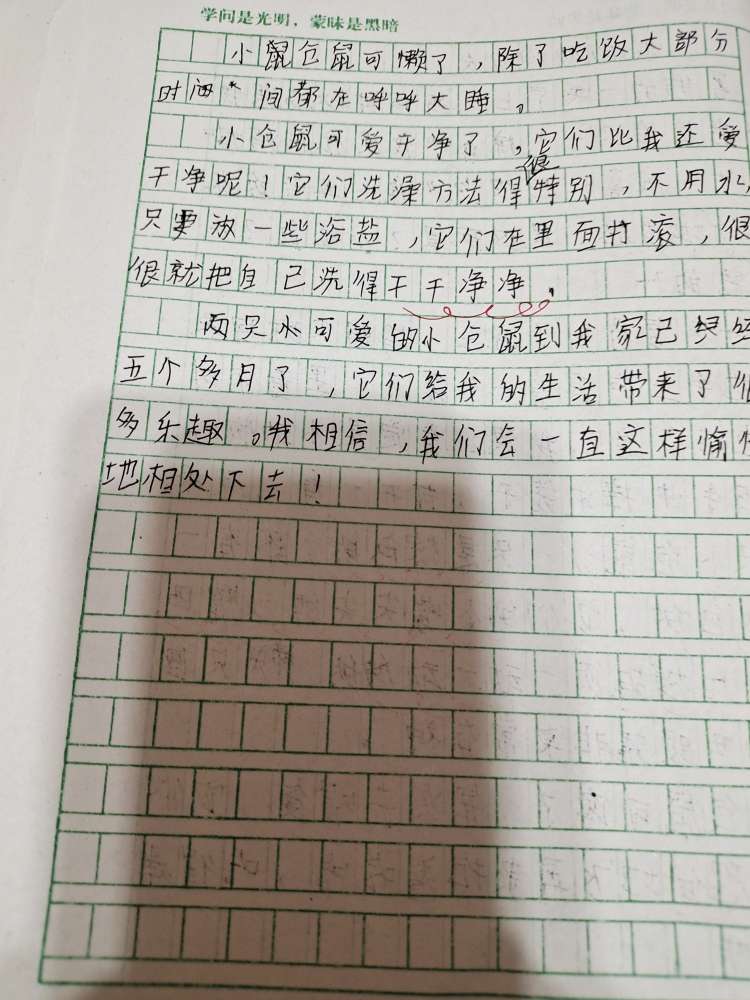 学问是光明，蒙昧是黑暗
小鼠仓鼠可懒了，除了吃饭大部分
时间都在呼呼大睡。
小仓鼠可爱干净了，它们比我还爱
干净呢！它们洗澡方法得很特别，不用水，
只要放一些浴盐，它们在里面打滚，很
很就把自己洗得干干净净。
两只小可爱的小仓鼠到我家已经
五个多月了，它们给我的生活带来了很
多乐趣。我相信，我们会一直这样愉快
地相处下去！